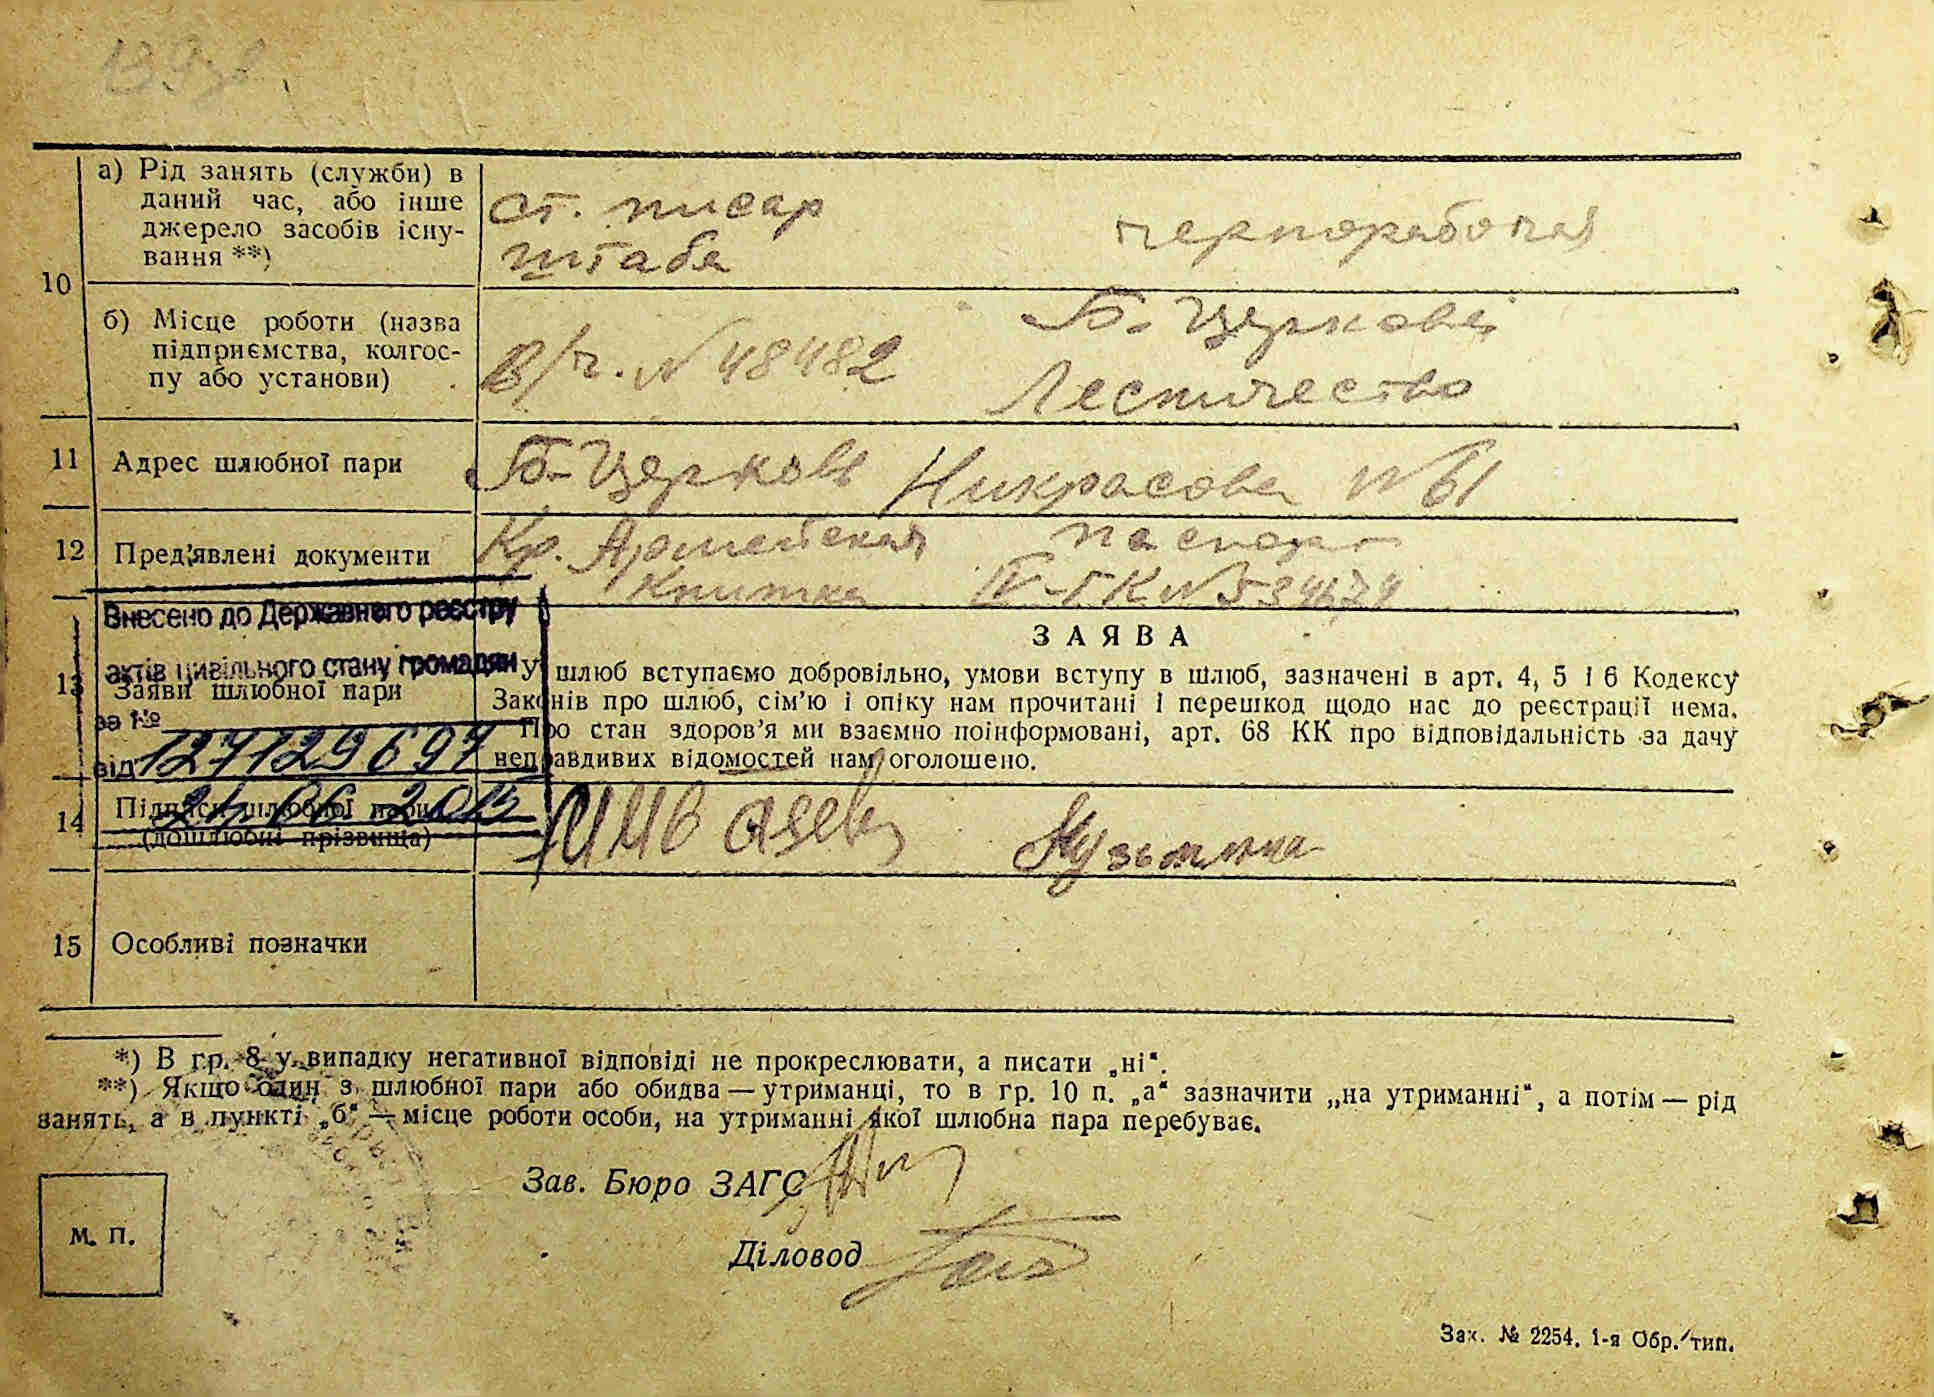 139зв.
а) Рід занять (служби) в
даний час, або інше
джерело засобів існу-
вання **)
ст. писар
штаба
чернорабочая
10
б) Місце роботи (назва
підприємства, колгос-
пу або установи)
В/ч. № 48482
Б. Церковь
Лесничество
11 Адрес шлюбної пари
Б-Церковь Никрасова № 61
12 Пред'явлені документи
Кр. Армейская
книжка
паспорт
IV-ГК № 534674
Внесено до Державного реєстру
актів цивільного стану громадян
за №
127129697
від 24 06 2015
13 Заяви шлюбної пари
ЗАЯВА
У шлюб вступаємо добровільно, умови вступу в шлюб, зазначені в арт. 4, 5 і 6 Кодексу
Законів про шлюб, сім'ю і опіку нам прочитані і перешкод щодо нас до реєстрації нема.
Про стан здоров'я ми взаємно поінформовані, арт. 68 КК про відповідальність за дачу
неправдивих відомостей нам оголошено.
14 Підписи шлюбної пари
(дошлюбні прізвища)
Кузьмина
15 Особливі позначки
*) В гр. 8 у випадку негативної відповіді не прокреслювати, а писати „ні“.
**) Якщо один з шлюбної пари або обидва — утриманці, то в гр. 10 п. „а“ зазначити „на утриманні“, а потім — рід
занять, а в пункті „б“ — місце роботи особи, на утриманні якої шлюбна пара перебуває.
Зав. Бюро ЗАГС
М. П.
Діловод
Зак. № 2254. 1-я Обр. тип.